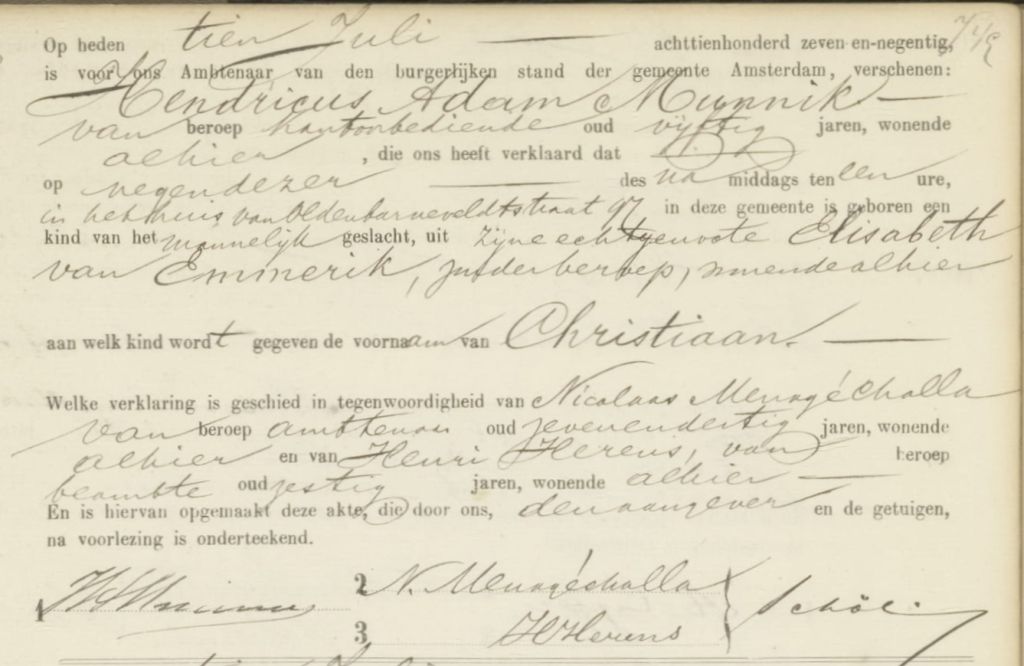 Op heden tien Juli achttienhonderd zeven-en-negentig,
is voor ons Ambtenaar van den burgerlijken stand der gemeente Amsterdam, verschenen:
Hendricus Adam Munnik
van beroep kantoorbediende oud vijftig jaren, wonende
alhier, die ons heeft verklaard dat
op negen dezer des na middags ten een ure,
in het huis van Oldenbarneveldtstraat 97 in deze gemeente is geboren een
kind van het mannelijk geslacht, uit zijne echtgenoote Elisabeth
van Emmerik, zonder beroep, wonende alhier
aan welk kind wordt gegeven de voornaam van Christiaan.
Welke verklaring is geschied in tegenwoordigheid van Nicolaas Menagé Challa
van beroep ambtenaar oud zevenendertig jaren, wonende
alhier en van Henri Herens, van beroep
beambte oud zestig jaren, wonende alhier
En is hiervan opgemaakt deze akte, die door ons, den aangever en de getuigen,
na voorlezing is onderteekend.
1 2 N. Menagéchalla
3 HHerens